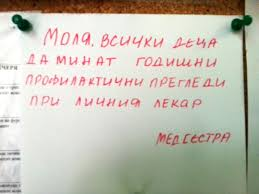 Моля, всички деца
да минат годишни
профилактични прегледи
при личния лекар
медсестра